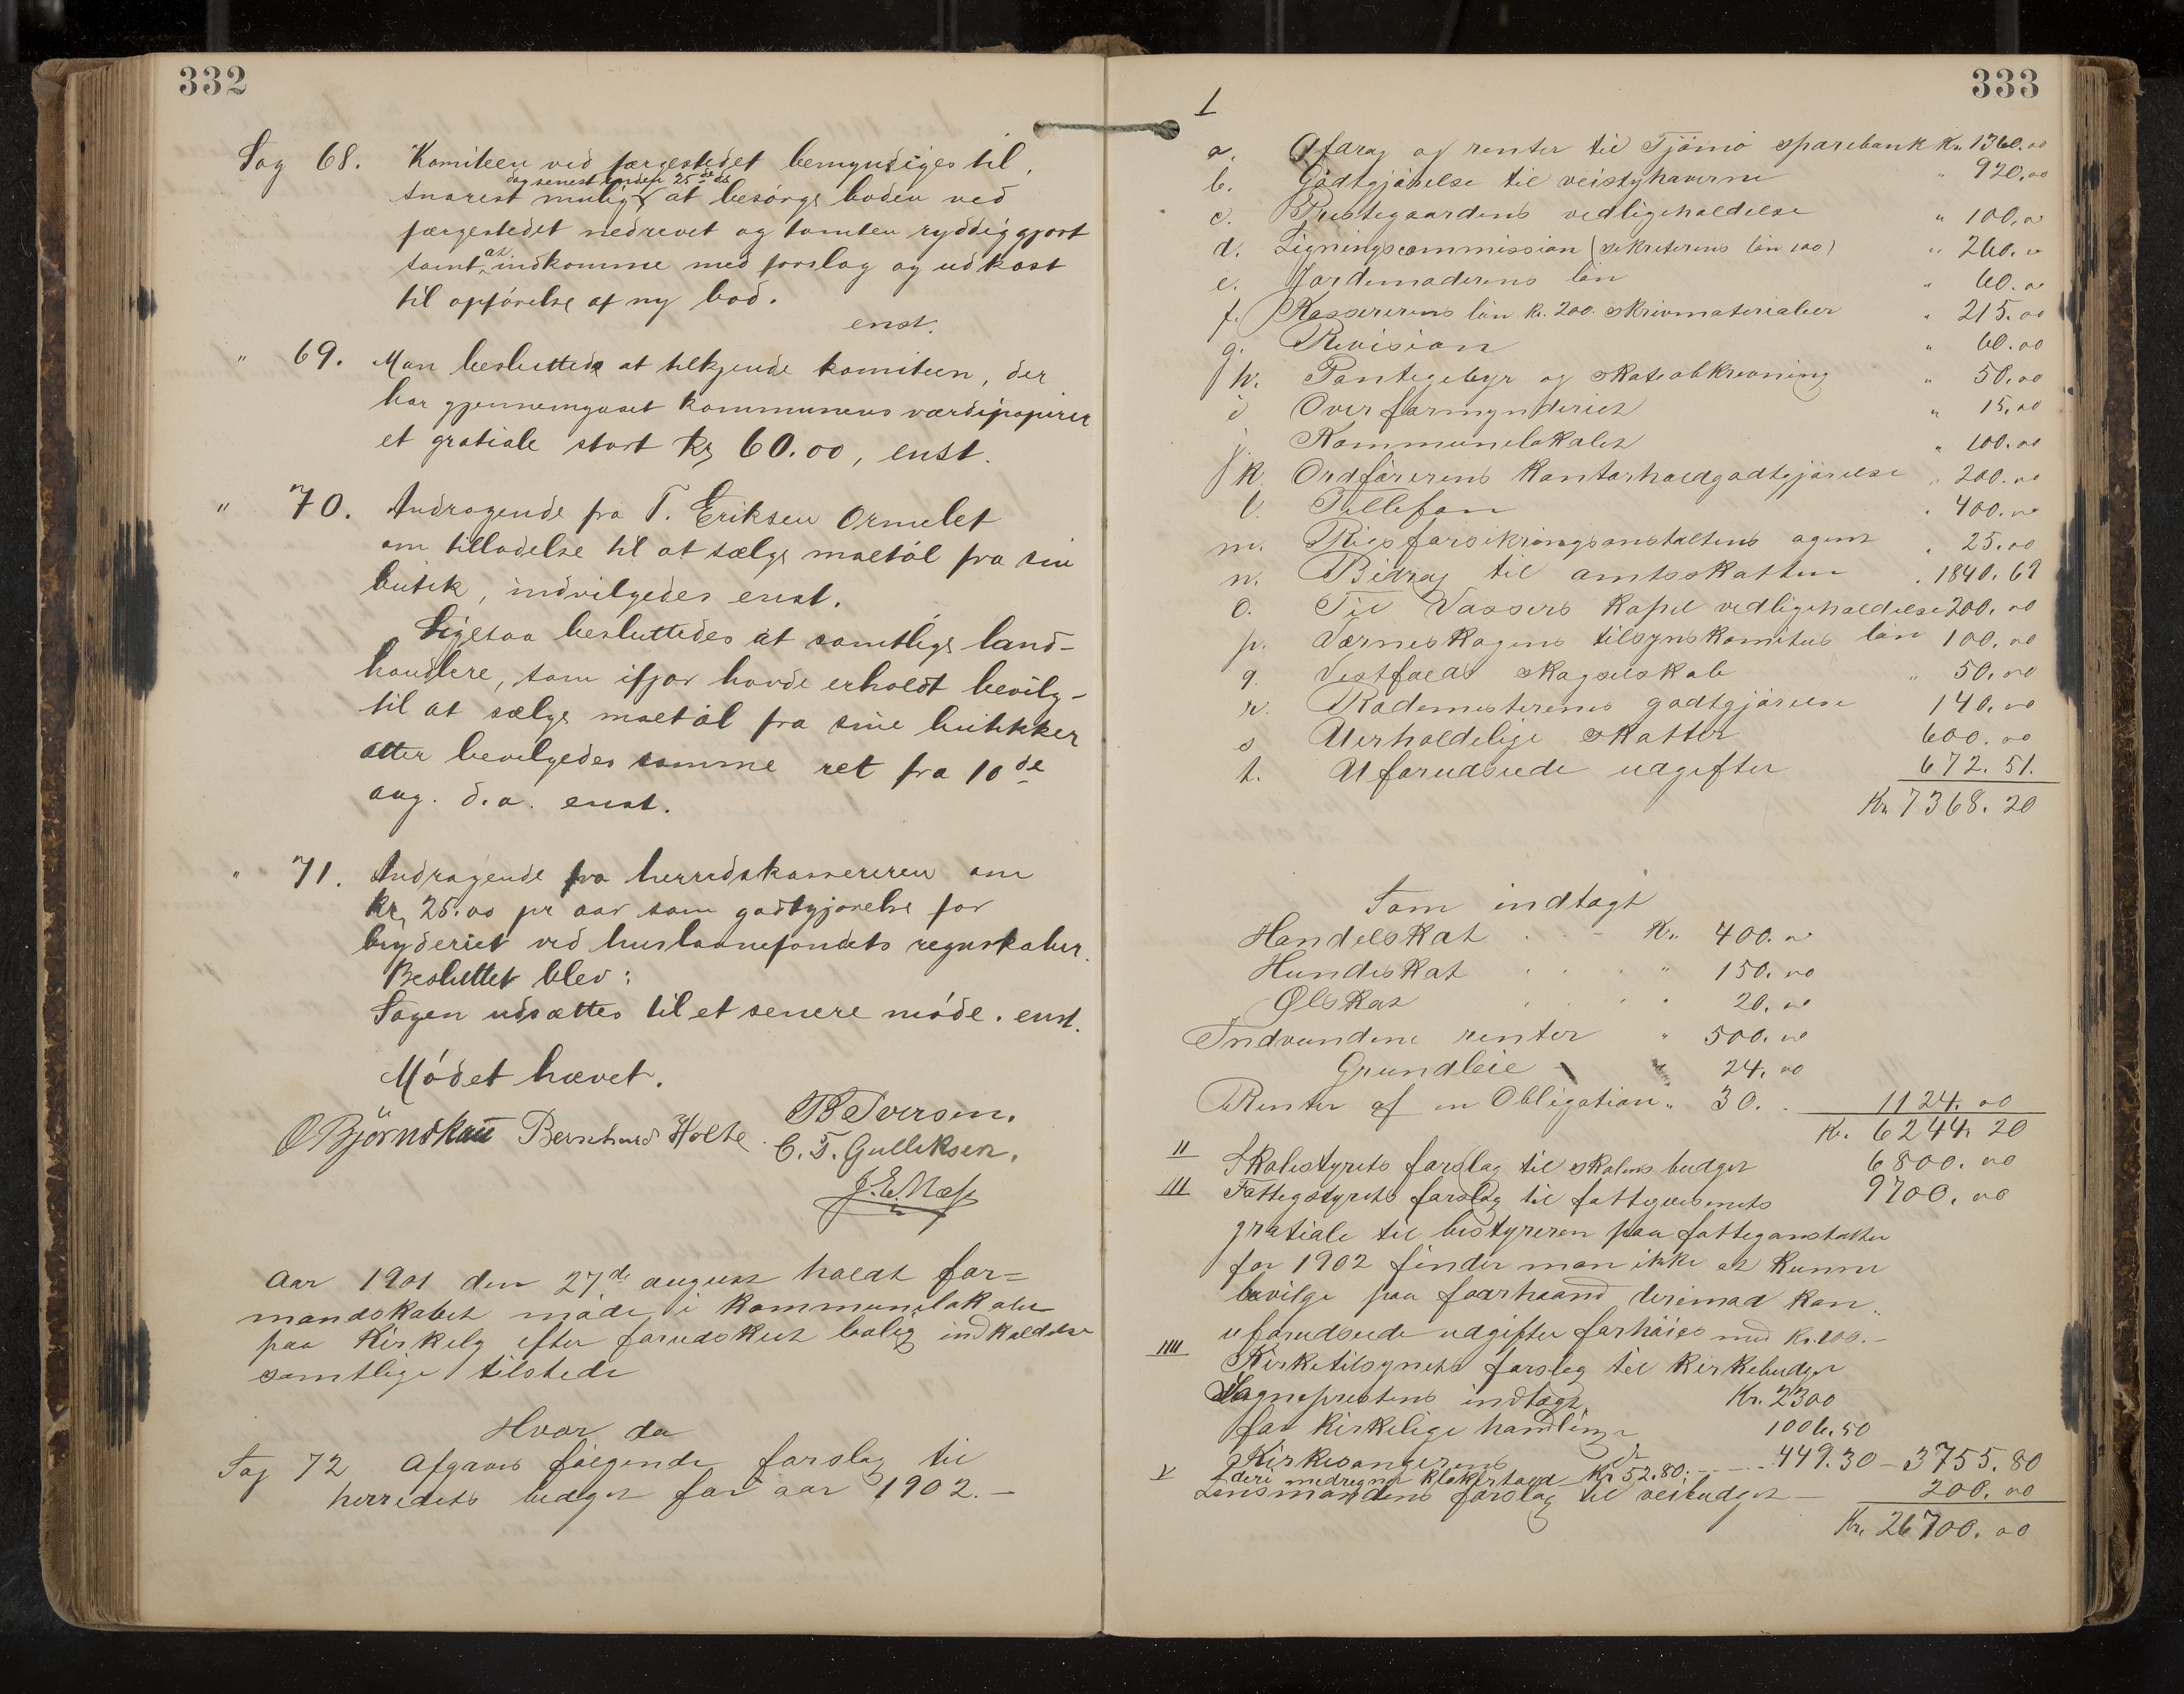 332
Sag 68. Komiteen ved færgestedet bemyndiges til,
dog senest inden 25de ds
snarest mulig at besørge boden ved
færgestedet nedrevet og tomten ryddiggjort
samt at indkomme med forslag og udkast
til opførelse af ny bod.
enst.
" 69. Man besluttede at tilkjende komiteen, der
har gjennemgaaet kommunens værdipapirer
et gratiale stort kr 60.00, enst.
" 70. Andragende fra T. Eriksen Ormelet
om tilladelse til at sælge maltøl fra sin
butik, indvilgedes enst.
Ligesaa besluttedes at samtlige land-
handlere, som ifjor havde erholdt bevilg-
til at sælge maltøl fra sine butikker
atter bevilgedes samme ret fra 10de
aug. d.a. enst.
" 71. Andragende fra herredskassereren om
kr, 25.00 pr aar som godtgjørelse for
bryderiet ved huslaanefondets regnskaber.
Besluttet blev:
Sagen udsættes til et senere møde. enst.
Mødet hævet.
O Bjørnskau Bernhard Holte. B Iversen.
C. F. Gulliksen.
J. E. Næss
Aar 1901 den 27de august holdt for=
mandskabet møde i kommunelokalet
paa Kirkely efter forudskeet lovlig indkaldelse
samtlige tilstede
Hvor da
Sag 72 Afgaves følgende forslag til
herredets budget for aar 1902.-
333
I
a. Afdrag og renter til Tjømø sparebank Kr. 1360.00
b. Godtgjørelse til veistyhaverne " 920.00
c. Prestegaardens vedligeholdelse " 100.00
d. Ligningscommission (sekreterens løn 100) " 260.00
e. Jordemoderens løn " 60.00
f. Kassererens løn kr. 200. skrivmaterialier " 215.00
g. Revision " 60.00
h. Pantegebyr og skateabkrevning " 50.00
i Overformynderiet " 15.00
j. Kommunelokalet " 100.00
k. Ordførerens Kontorholdgodtgjørelse " 200.00
l. Tellefon " 400.00
m. Rigsforsikringsanstaltens agent " 25.00
n. Bidrag til amtsskatten " 1840.69
o. Til Vassers Kapel vedligeholdelse 200.00
p. Værneskogens tilsynskomitees løn 100.00
q. Vestfolds skogselskab " 50.00
r. Rodemesterenes godtgjørelse 140.00
s Uerholdelige skatter 600.00
t. Uforudseede udgifter 672.51.
Kr. 7368.20
Som indtægt
Handelskat Kr. 400.00
Hundeskat " 150.00
Ølskat " 20.00
Indvundne renter " 500.00
Grundleie 24.00
Renter af en Obligation " 30. 1124.00
Kr. 6244.20
II Skolestyrets forslag til skolens budget 6800.00
III Fattigstyrets forslag til fattigvæsenets 9700.00
gratiale til bestyreren paa fattiganstalten
for 1902 finder man ikke at kunne
bevilge paa forhaand derimod kan
uforudseede udgifter forhøies med kr. 100.-
IIII Kirketilsynets forslag til kirkebudget
Sogneprestens indtægt Kr. 2300
for kirkelige handlinger 1006.50
Kirkesangerens 449.30 - 3755.80
deri medregnet klokkertold Kr 52.80.
V Lensmandens forslag til veibudget - 200.00
Kr. 26700.00